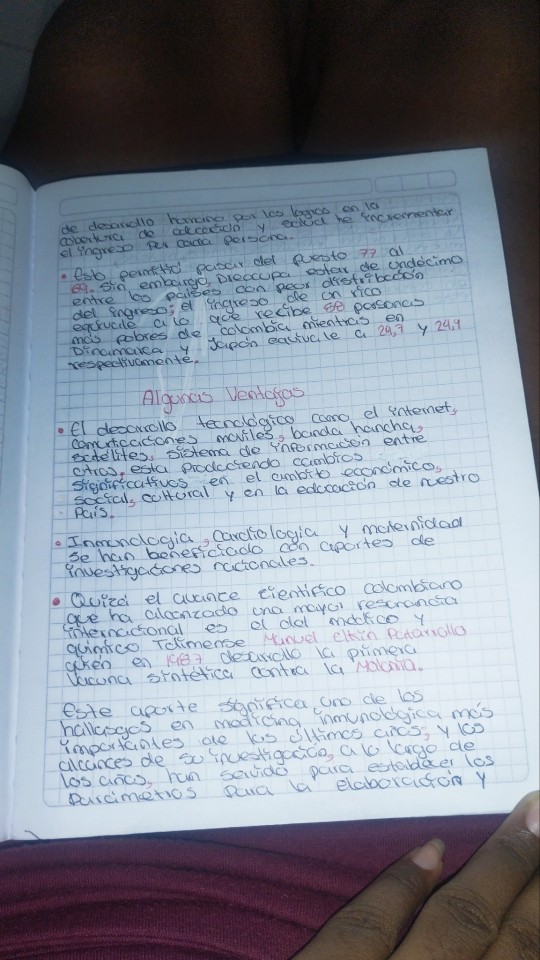 de desarrollo humano por los logros en la
cobertura de educación y salud he incrementar
el ingreso per cada persona.
• Esto permitió pasar del puesto 77 al
69. Sin embargo, preocupa estar de undécimo
entre los países con peor distribución
del ingreso; el ingreso de un rico
equivale a lo que recibe 58 personas
más pobres de colombia mientras en
Dinamarca y Japón equivale a 24,7 y 24,9
respectivamente.
Algunas Ventajas
• El desarrollo tecnológico como el internet,
comunicaciones moviles, banda hancha,
satélites, sistema de información entre
otros, esta produciendo cambios
significativos en el ambito económico,
social, cultural y en la educación de nuestro
País.
• Inmonologia, Cardiologia y maternidad
se han beneficiado con aportes de
investigaciones nacionales.
• Quizá el avance científico colombiano
que ha alcanzado una mayor resonancia
internacional es el del médico y
químico Tolimense Manuel elkin Patarrollo
quien en 1987 desarrollo la primera
Vacuna sintética contra la Malaria.
Este aporte significa uno de los
hallasgos en medicina inmunológica más
importantes de los últimos años, y los
alcances de su investigación, a lo largo de
los años, han servido para establecer los
parámetros para la elaboración y